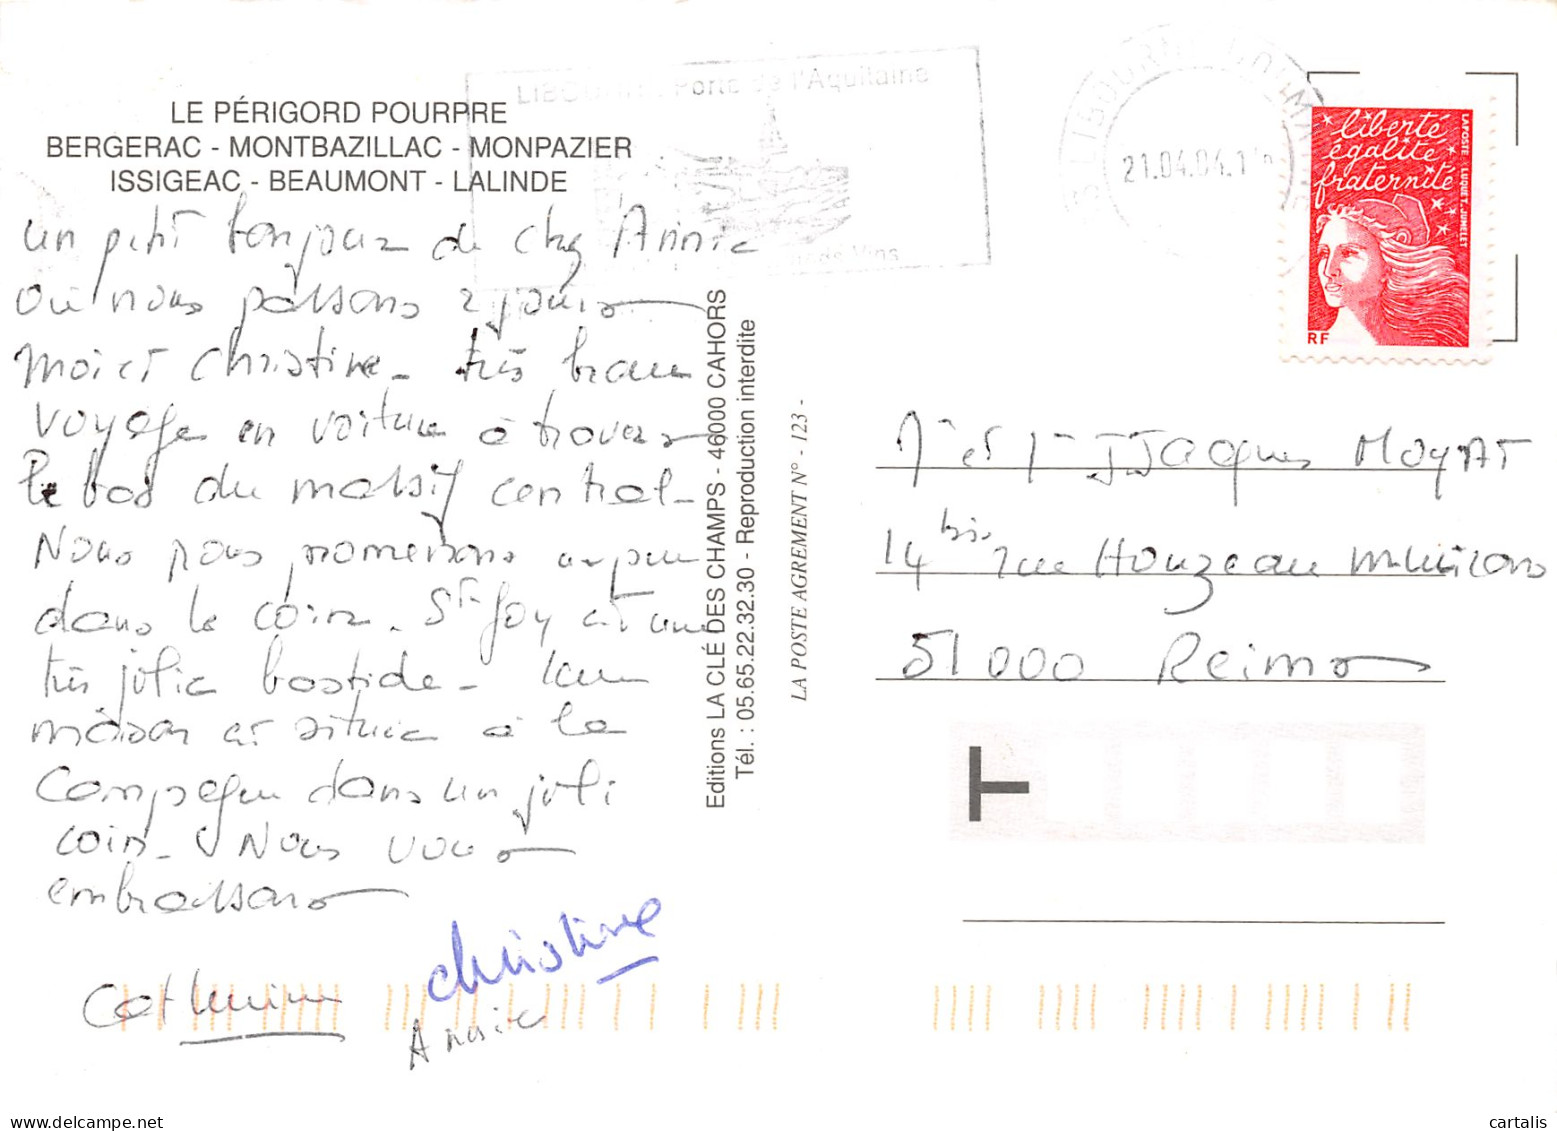 LE PÉRIGORD POURPRE
BERGERAC - MONTBAZILLAC - MONPAZIER
ISSIGEAC - BEAUMONT - LALINDE
un petit bonjour de chez Annie
où nous passons 2 jours
moi et Christine - très beau
voyage en voiture à travers
le bas du massif central -
Nous nous promenons un peu
dans le coin. St Foy est une
très jolie bastide -
maison est située à la
campagne dans un joli
coin - Nous vous
embrassons
Catherine
Christine
Annie
Editions LA CLÉ DES CHAMPS - 46000 CAHORS
Tél. : 05.65.22.32.30 - Reproduction interdite
LA POSTE AGREMENT N° - 123 -
Porte de l'Aquitaine
21.04.04
liberté
égalité
fraternité
LA POSTE LUQUET, JUMELET
RF
JJacques MOYAT
14 bis rue Houzeau Muiron
51000 Reims
T
cartalis